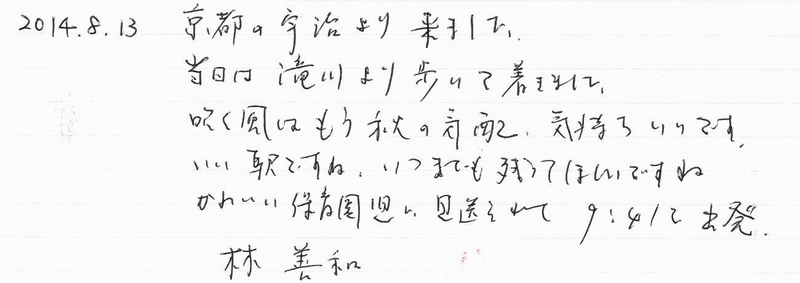 2014.8.13 京都の宇治より来ました。
当日は滝川より歩いて着きました。
吹く風はもう秋の気配、気持ちいいです。
いい駅ですね、いつまでも残ってほしいですね
かわいい保育園児に見送られて 9:41に出発。
林 善和